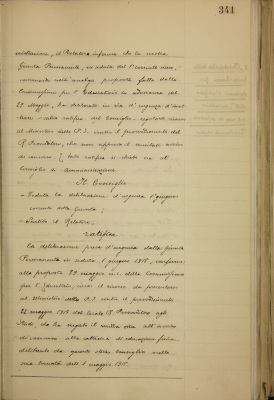 341
, il Relatore informa che la nostra
Giunta Permanente, in seduta del 1° corrente mese,
 analoga proposta fatta dalla
Commissione per l' Educatorio in adunanza del
29 Maggio, ha deliberato in via d' urgenza d'inol-
trare - salvo ratifica del Consiglio - regolare ricorso
al Ministero della P. I. contro il provvedimento del
R. Provveditore, che non approva il suindicato avviso
di concorso. E tale ratifica si chiede ora al
Consiglio di Amministrazione.
Il Consiglio
- Veduta la deliberazione d'urgenza 1° giugno
corrente della Giunta;
- Sentito il Relatore;
ratifica
la deliberazione presa d'urgenza dalla Giunta
Permanente in seduta 1 giugno 1915, conforme
alla proposta 29 maggio u.s. della Commissione
per l' Educatorio, circa il ricorso da presentare
al Ministero della P. I. contro il provvedimento
22 maggio 1915 del locale R. Provveditore agli
Studi, che ha negato il nulla osta all' avviso
di concorso alla cattedra di educazione fisica
deliberato da questo stesso Consiglio nella
sua tornata dell' 8 maggio 1915.